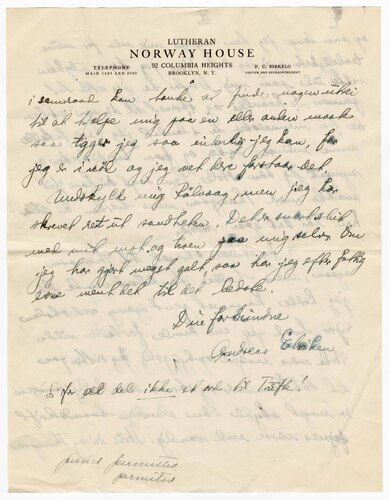 LUTHERAN
NORWAY HOUSE
TELEPHONE
MAIN 1624 AND 2090
92 COLUMBIA HEIGHTS
BROOKLYN, N. Y.
F. C. BIRKELO
PASTOR AND SUPERINTENDENT
i samraad kan tænke at finde nogen utvei
til at hjelpe mig paa en eller anden maate
saa tigger jeg saa inderlig jeg kan, for
jeg er i nød og jeg vet dere forstaar det.
Undskyld mig Rølvaag, men jeg har
skrevet ret ut sandheten. Det er snart slut
med mit mot og troen paa mig selv. Om
jeg har gjort meget galt, saa har jeg efter fattig
evne ment det til det bedste.
Din forbundne
Andreas
Si for alt det ikke et ord til Trefte!
permitus
permitus